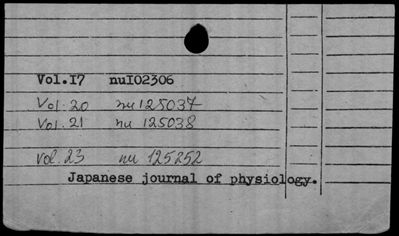 Vol.I7 nuI02306
Vol. 20 nu 125037
Vol. 21 nu 125038
Vol. 23 nu 125252
Japanese journal of physiology.